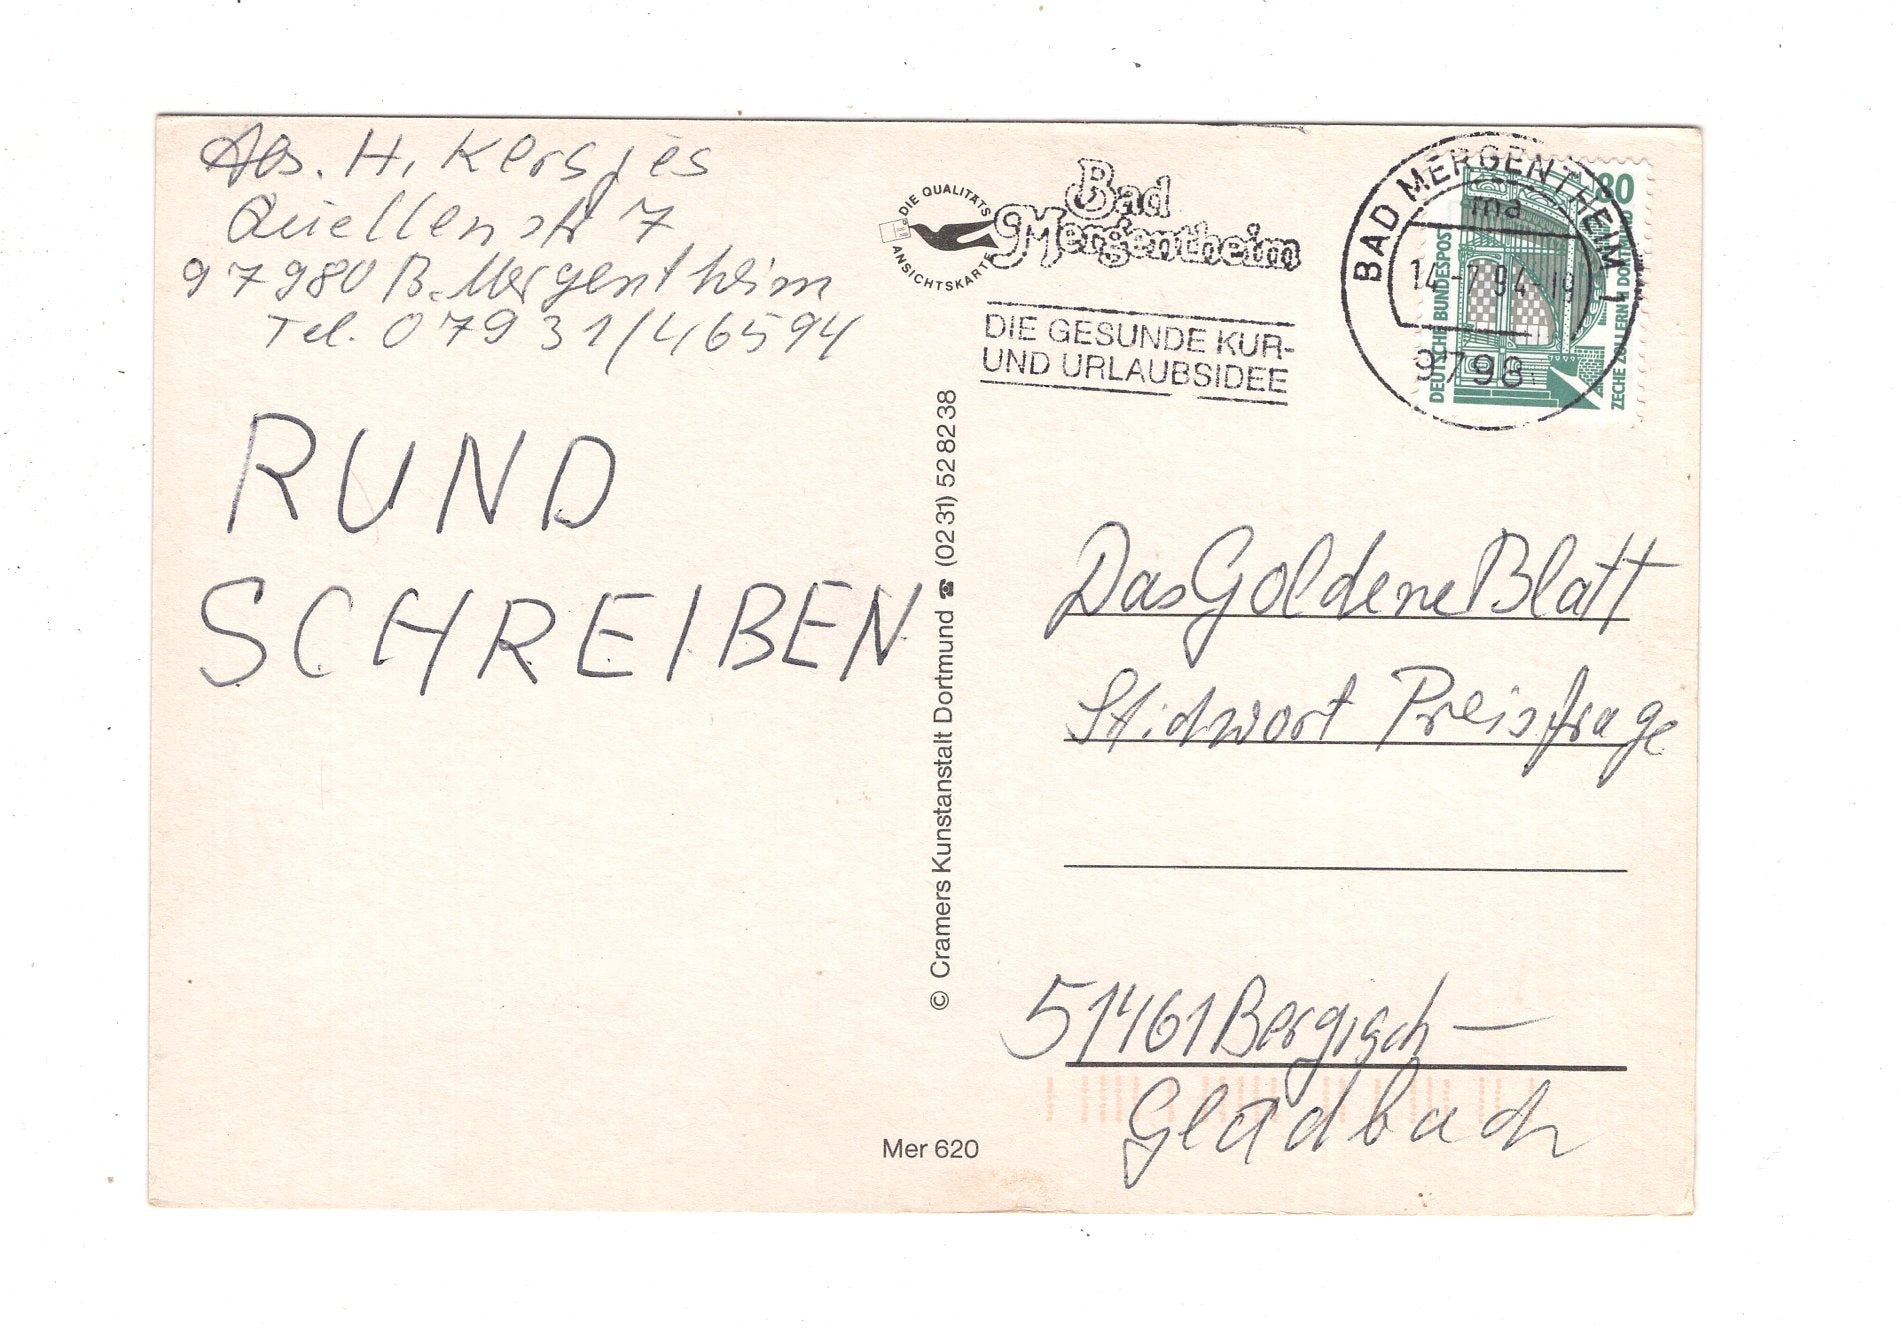 Abs. H. Kersjes
Quellenstr 7
97980 B. Mergentheim
Tel. 07931/46594
RUND
SCHREIBEN
DIE QUALITÄTS
ANSICHTSKARTE
Bad
Mergentheim
DIE GESUNDE KUR-
UND URLAUBSIDEE
BAD MERGENTHEIM 1
ma
14.-7.94-19
9798
80
DEUTSCHE BUNDESPOST
ZECHE ZOLLERN II DORTMUND
© Cramers Kunstanstalt Dortmund ☎ (02 31) 52 82 38
Das Goldene Blatt
Stichwort Preisfrage
51461 Bergisch –
Gladbach
Mer 620